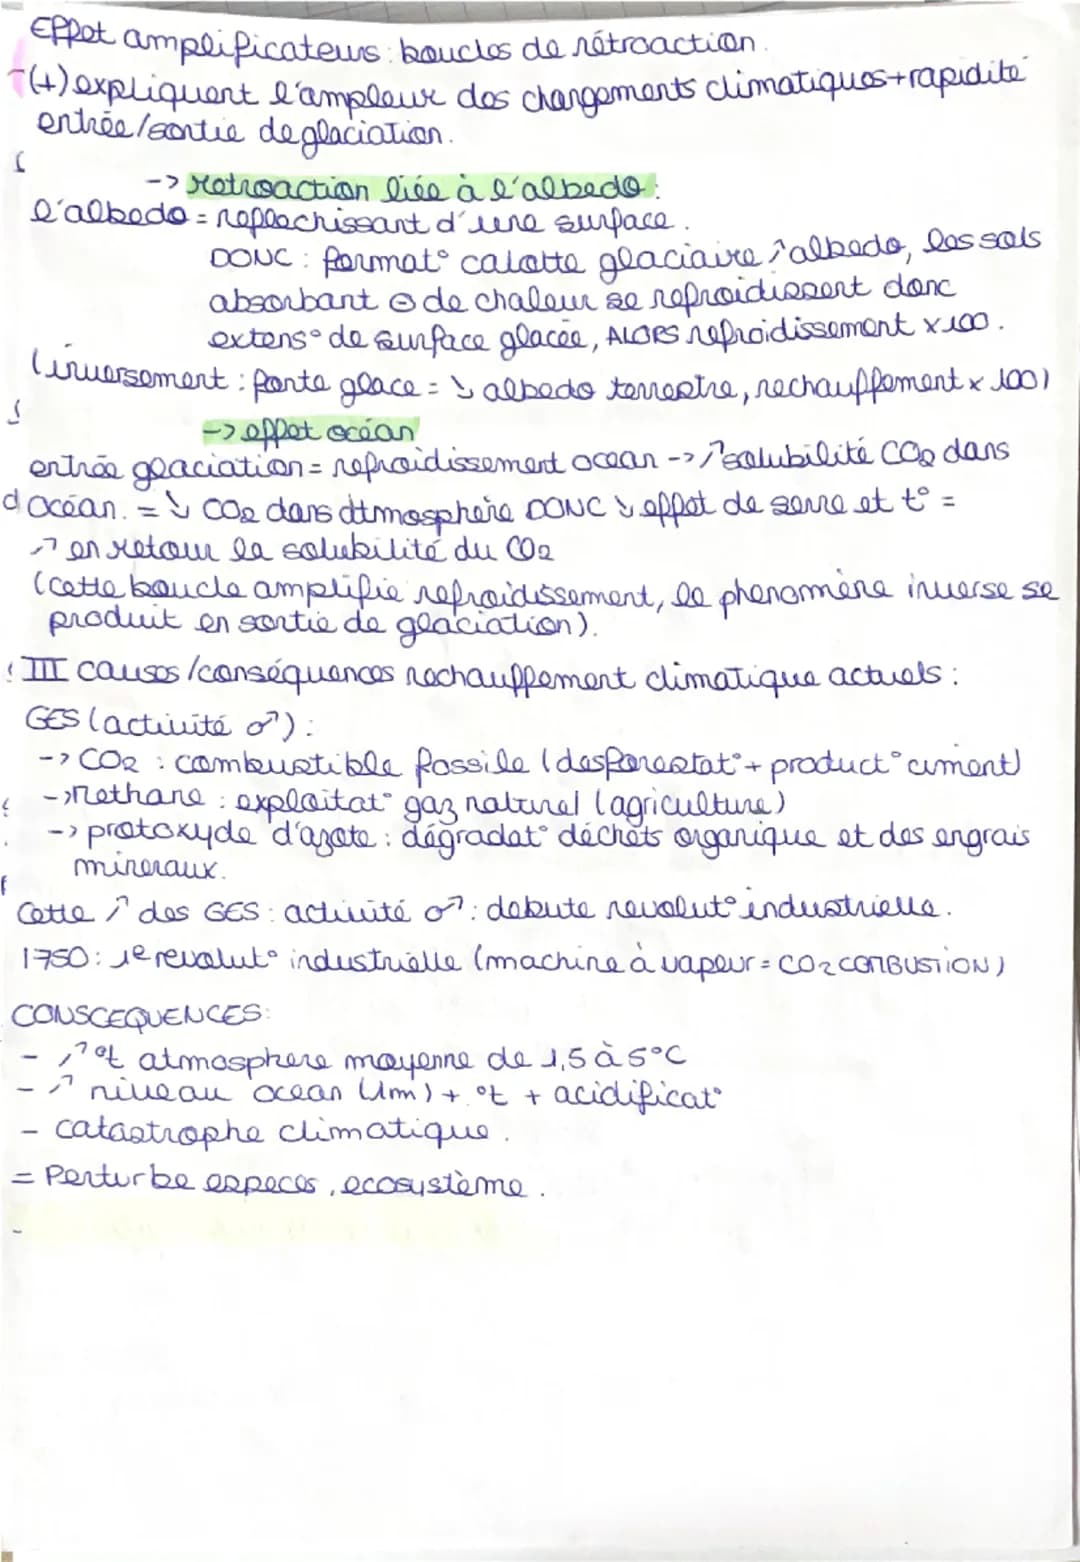 Effet amplificateurs: boucles de rétroaction.
(+) expliquent l'ampleur des changements climatiques + rapidité
entrée/sortie de glaciation.
-> retroaction liée à l'albedo:
l'albedo = reflechissant d'une surface.
DONC : format° calotte glaciaire ↗ albedo, les sols
absorbant ⊖ de chaleur se refroidissent donc
extens° de surface glacée, ALORS refroidissement x 100.
(inversement : fonte glace = ↘ albedo terrestre, rechauffement x 100)
-> effet océan
entrée glaciation = refroidissement ocean -> ↗ solubilité CO2 dans
océan. = ↘ CO2 dans atmosphère DONC ↘ effet de serre et t° =
↗ en retour la solubilité du CO2
(cette boucle amplifie refroidissement, le phenomène inverse se
produit en sortie de glaciation).
III causes/conséquences rechauffement climatique actuels :
GES (activité ♂) :
-> CO2 : combustible fossile (desforestat° + product° ciment)
-> Methane : exploitat° gaz naturel (agriculture)
-> protoxyde d'azote : dégradat° déchets organique et des engrais
mineraux.
Cette ↗ des GES : activité ♂ : debute revolut° industrielle.
1750 : 1e revolut° industrielle (machine à vapeur = CO2 COMBUSTION)
CONSCEQUENCES:
- ↗ °t atmosphere moyenne de 1,5 à 5°C
- ↗ niveau ocean (1m) + °t + acidificat°
- catastrophe climatique.
= Perturbe especes, ecosystème.
-